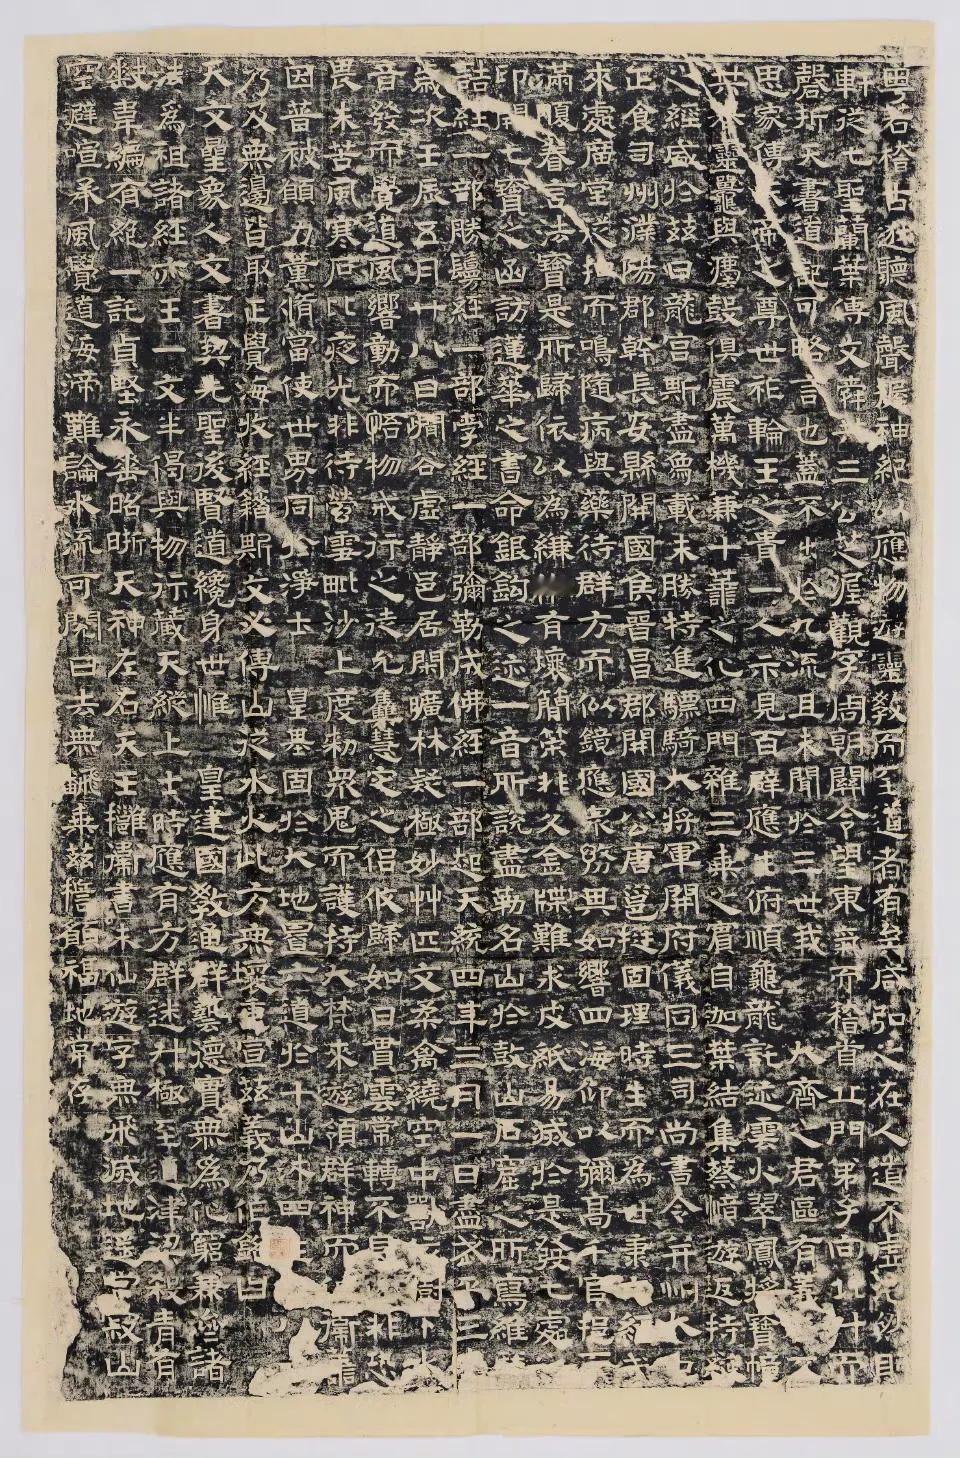 粤若稽古猒聽風聲應物靈教而至道者有矣咸弘之在人道不虛
軒從七聖蘭葉傳文三公芝泥觀乎周訴關令望東氣而稽首丘門弟子向北斗而
磬折天書道記可略言也蓋不出於九流且未聞於三世我大齊之君區有義
思家傳天帝之尊世祚輪王之貴一人示見百辟應其府順龜龍託迹雲火翠鳳將寶幢
共來靈鼉與鷹鼓俱震萬機兼十善之化四門雜三乘之賓自迦葉結集蔡愔遊返持
之經盛於茲日龍宮斯盡鳥載未勝特進驃騎大將軍開府儀同三司尚書令并州大
正食司州濮陽郡幹長安縣開國侯晉昌郡開國公唐邕挺固理時生而為世
來處廣堂若扣而鳴隨病與藥待群方而似鏡應眾務其如響四海仰以彌高千官挹
滿願眷言法寶是所歸依以為縑有壞簡策非久金牒難求皮紙易滅於是發七處
印開七寶之函訪蓮華之書命銀鉤之迹一音所說盡勒名山於鼓山石窟之所寫維
詰經一部勝鬘經一部孛經一部彌勒成佛經一部起天統四年三月一日盡武平三
歲次壬辰五月廿八日㵎谷虛靜邑居閑曠林疑極妙草匹文柔禽繞空中獸
音發而覺道風響動而悟物戒行之徒允麤慧定之侶攸歸如日貫雲常轉不
畏木苦風寒石比夜光非待螢雪毗沙上度勑眾鬼而護持大梵來遊領群神而
因普被願力薰脩當使世界同於淨土皇基固於大地置一道於十山沐四
乃及無邊皆取正覺海收經籍斯文必傳山從水火此方無壞重宣茲義乃作銘曰
天文星象人文書契先聖後賢道纔身世惟皇建國教通群藝德實無為化窮兼濟諸
法為祖諸經亦王一文半偈與物行藏天縱上士時應有方群迷升極至津梁殺青有
蠹韋編有絕一託貞堅永垂昭晰天神左右天王擁衛書未仙遊字無飛滅地遙京縣山
實避喧承風覺道海渧難論水流可閱日去無飜乘茲誓願福地常存